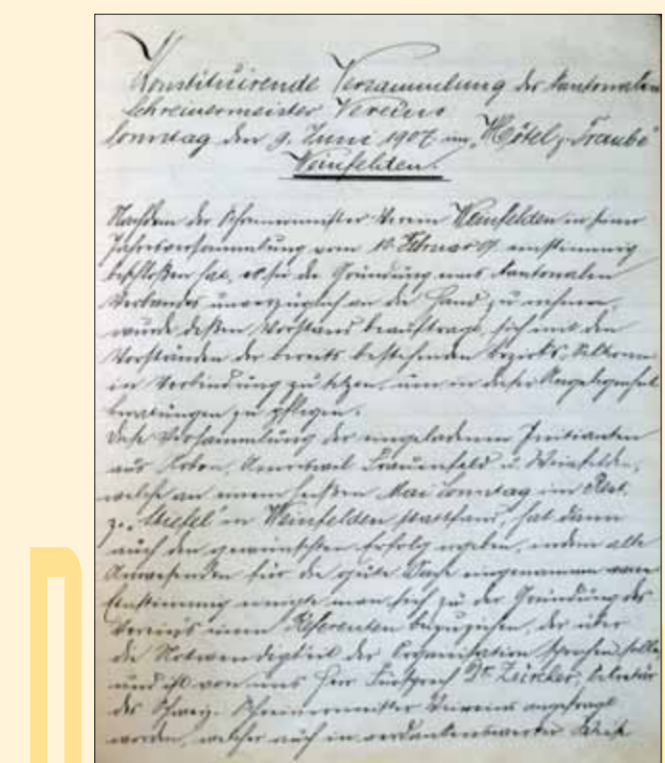 Konstituirende Versammlung des Kantonalen
Schreinermeister Vereins
Sonntag den 9. Juni 1907 im „Hôtel z. Traube“
Weinfelden.
Nachdem der Schreinermeister Verein Weinfelden in seiner
Jahresversammlung vom 10. Februar 07 einstimmig
beschloßen hat, es sei die Gründung eines Kantonalen
Verbandes unverzüglich an die Hand zu nehmen,
wurde deßen Vorstand beauftragt, sich mit den
Vorständen der bereits bestehenden Bezirks-
in Verbindung zu setzen, um in dieser Angelegenheit
Beratungen zu pflegen.
Diese Versammlung der eingeladenen Initianten
aus Arbon, Amriswil Frauenfeld u. Weinfelden,
welche an einem heißen Mai Sonntag im Rest.
z. „Stiefel“ in Weinfelden stattfand, hat dann
auch den gewünschten Erfolg indem alle
Anwesenden für die gute Sache eingenommen waren
Einstimmig einigte man sich zu der Gründung des
Vereins einen Referenten beizuziehen, der über
die Notwendigkeit der Organisation sprechen solle
und ist von uns Herr Fürsprech Dr. Zürcher, Sekretär
des Schweiz. Schreinermeister Vereins angefragt
worden, welcher auch in verdankenswerter Weise